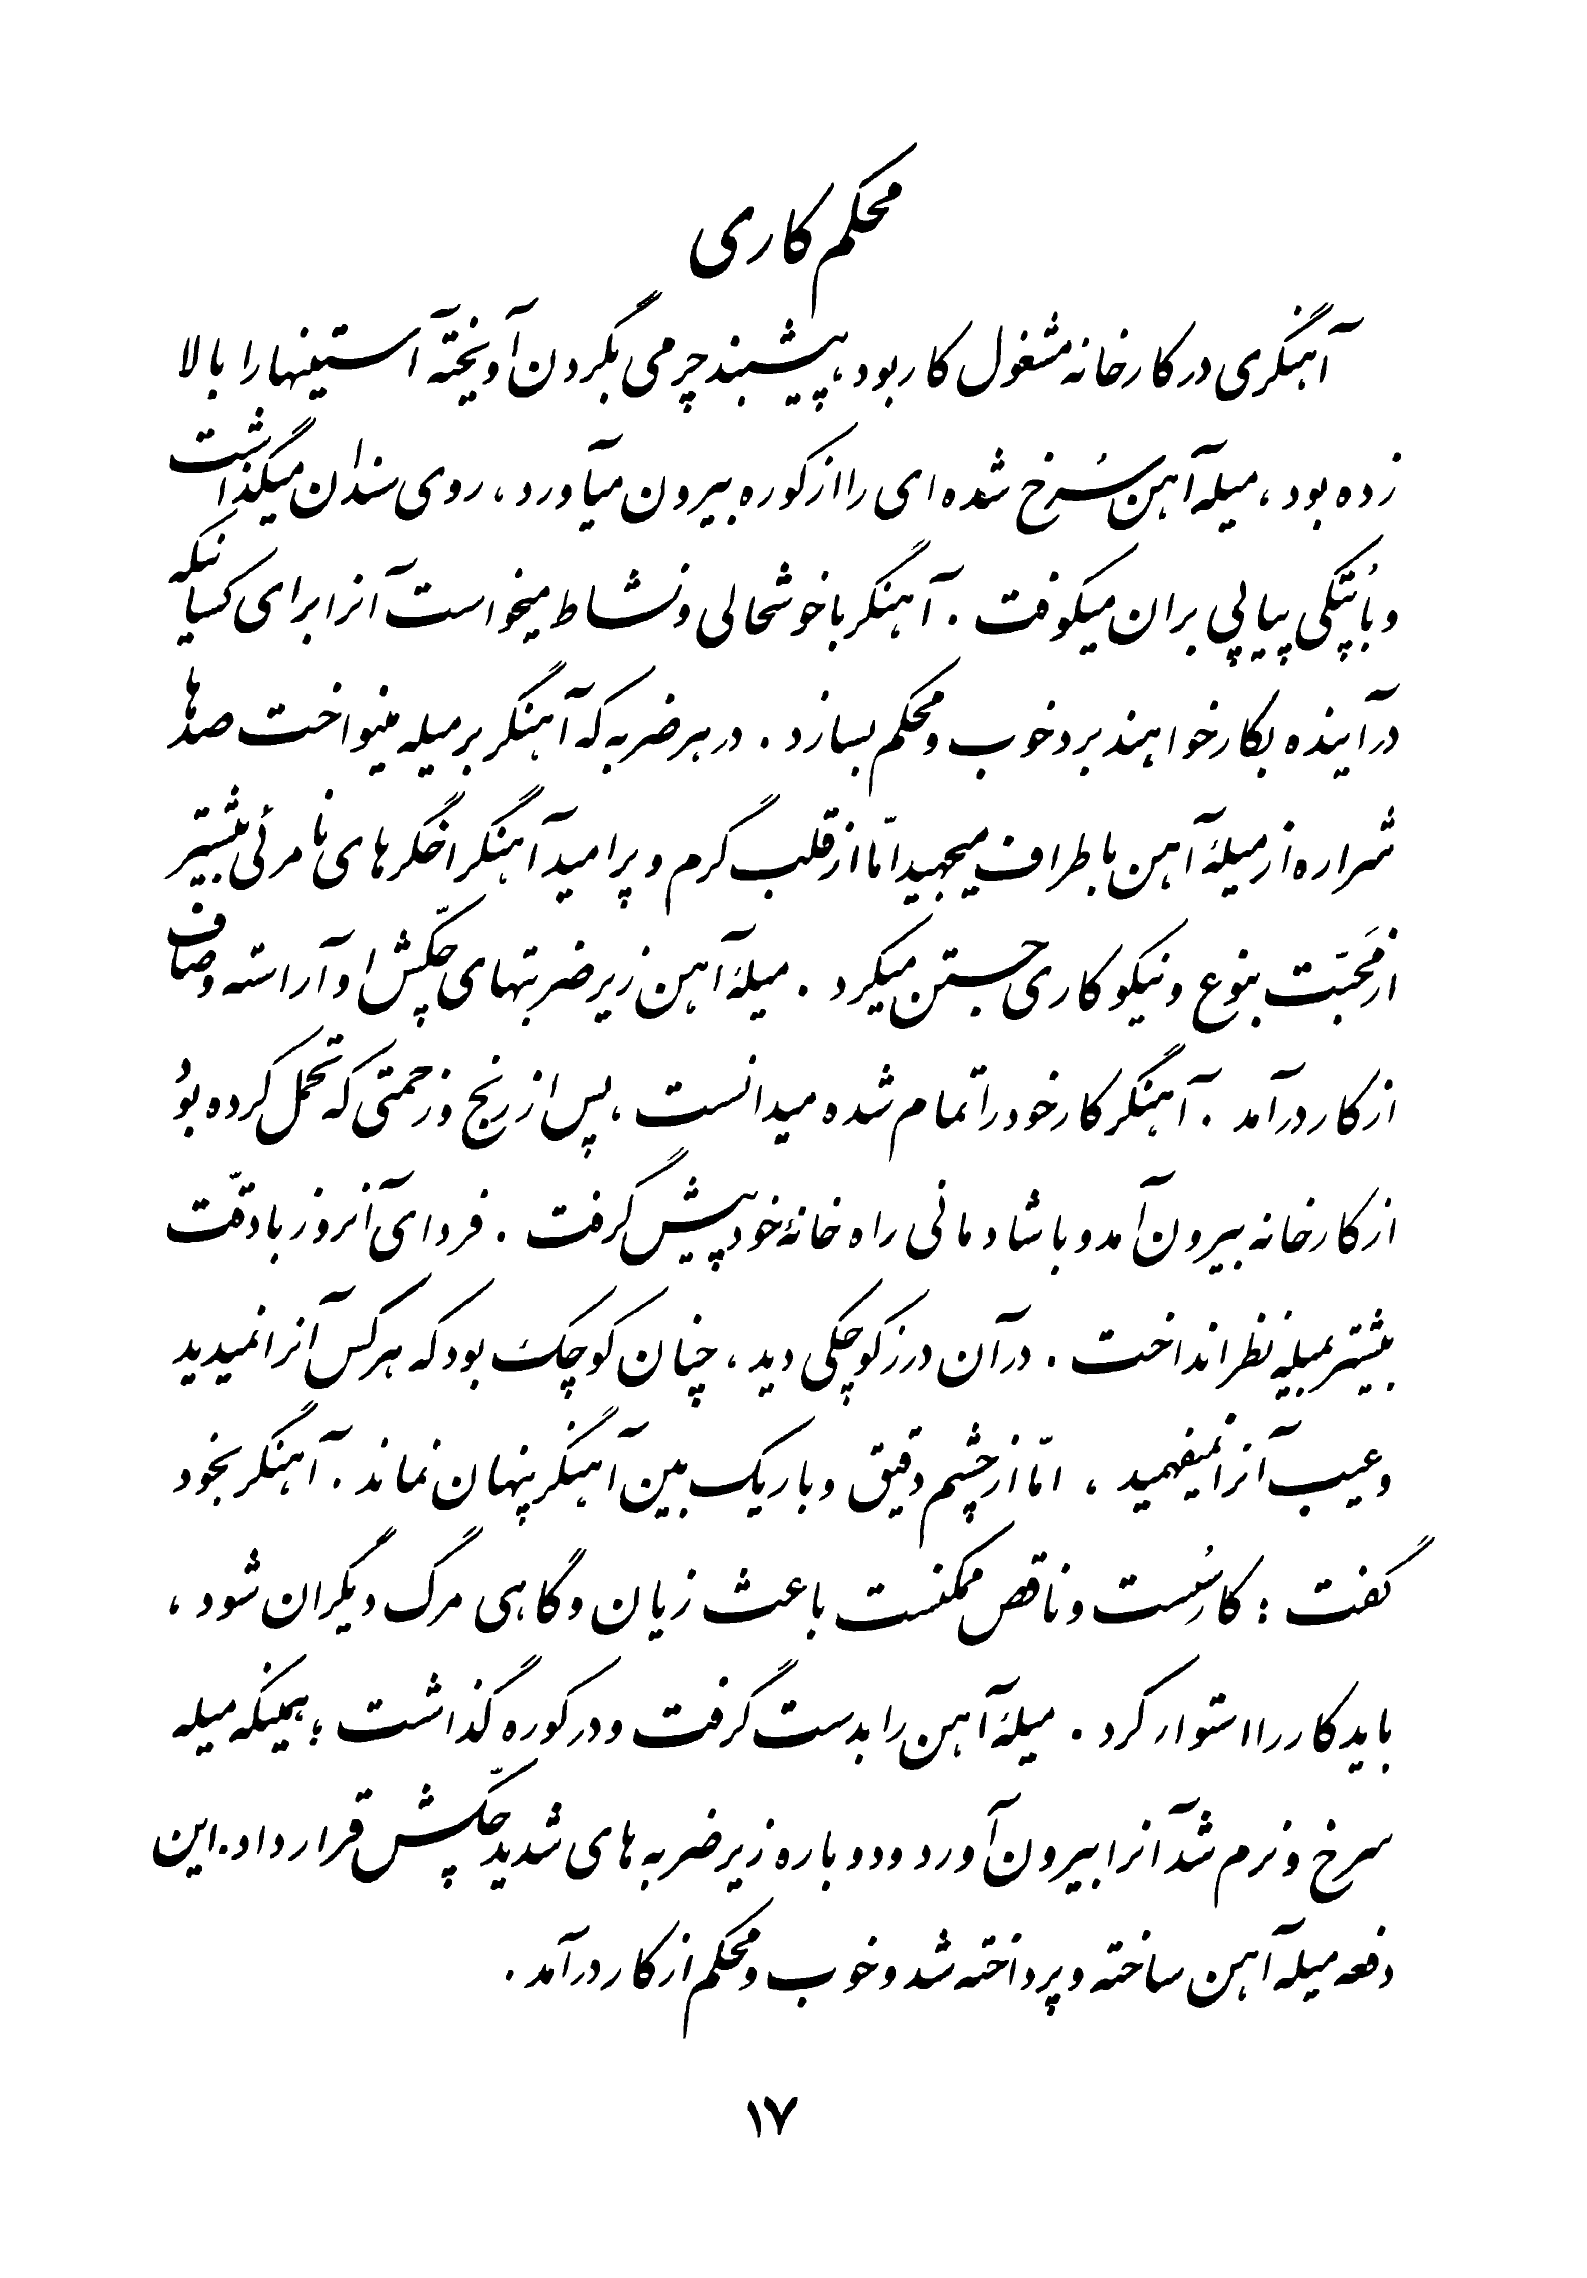 محکم کاری
آهنگری در کارخانه مشغول کار بود، پیشبند چرمی بگردن آویخته آستینها را بالا
زده بود، میله آهن سُرخ شده ای را از کوره بیرون میآورد، روی سندان میگذاشت
و با پُتکی پیاپی بران میکوفت . آهنگر با خوشحالی و نشاط میخواست آنرا برای کسانیکه
در آینده بکار خواهند برد خوب و محکم بسازد . در هر ضربه که آهنگر بر میله مینواخت صدها
شراره از میلهٔ آهن باطراف میجهید امّا از قلب گرم و پر امید آهنگر اخگرهای نامرئی بیشتر
از مَحبّت بنوع و نیکوکاری جستن میکرد . میلهٔ آهن زیر ضربتهای چکّش او آراسته و صاف
از کار درآمد . آهنگر کار خود را تمام شده میدانست ، پس از رنج و زحمتی که تحمل کرده بود
از کارخانه بیرون آمد و با شادمانی راه خانهٔ خود پیش گرفت . فردای آنروز با دقّت
بیشتر بمیله نظر انداخت . در آن درز کوچکی دید ، چنان کوچک بود که هر کس آنرا نمیدید
و عیب آنرا نمیفهمید ، امّا از چشم دقیق و باریک بین آهنگر پنهان نماند . آهنگر بخود
گفت : کار سُست و ناقص ممکنست باعث زیان و گاهی مرگ دیگران شود ،
باید کار را استوار کرد . میلهٔ آهن را بدست گرفت و در کوره گذاشت ؛ همینکه میله
سرخ و نرم شد آنرا بیرون آورد و دوباره زیر ضربه های شدید چکّش قرار داد. این
دفعه میله آهن ساخته و پرداخته شد و خوب و محکم از کار درآمد .
۱۷